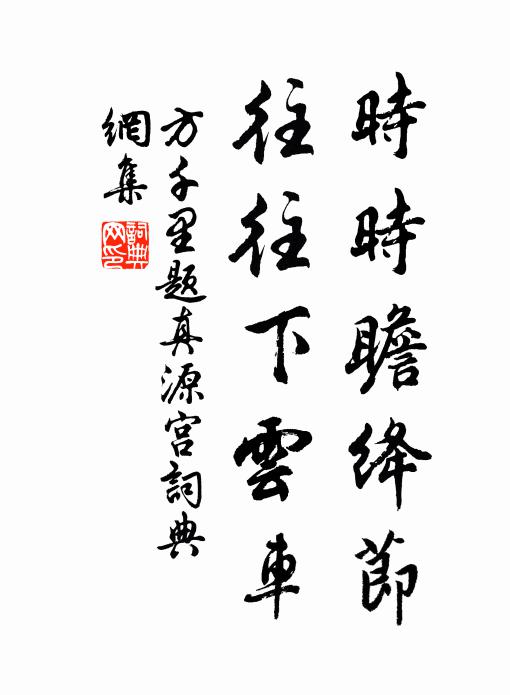 時時瞻絳節
往往下雲車
方千里題真源宮詞典
網集
詞典網印